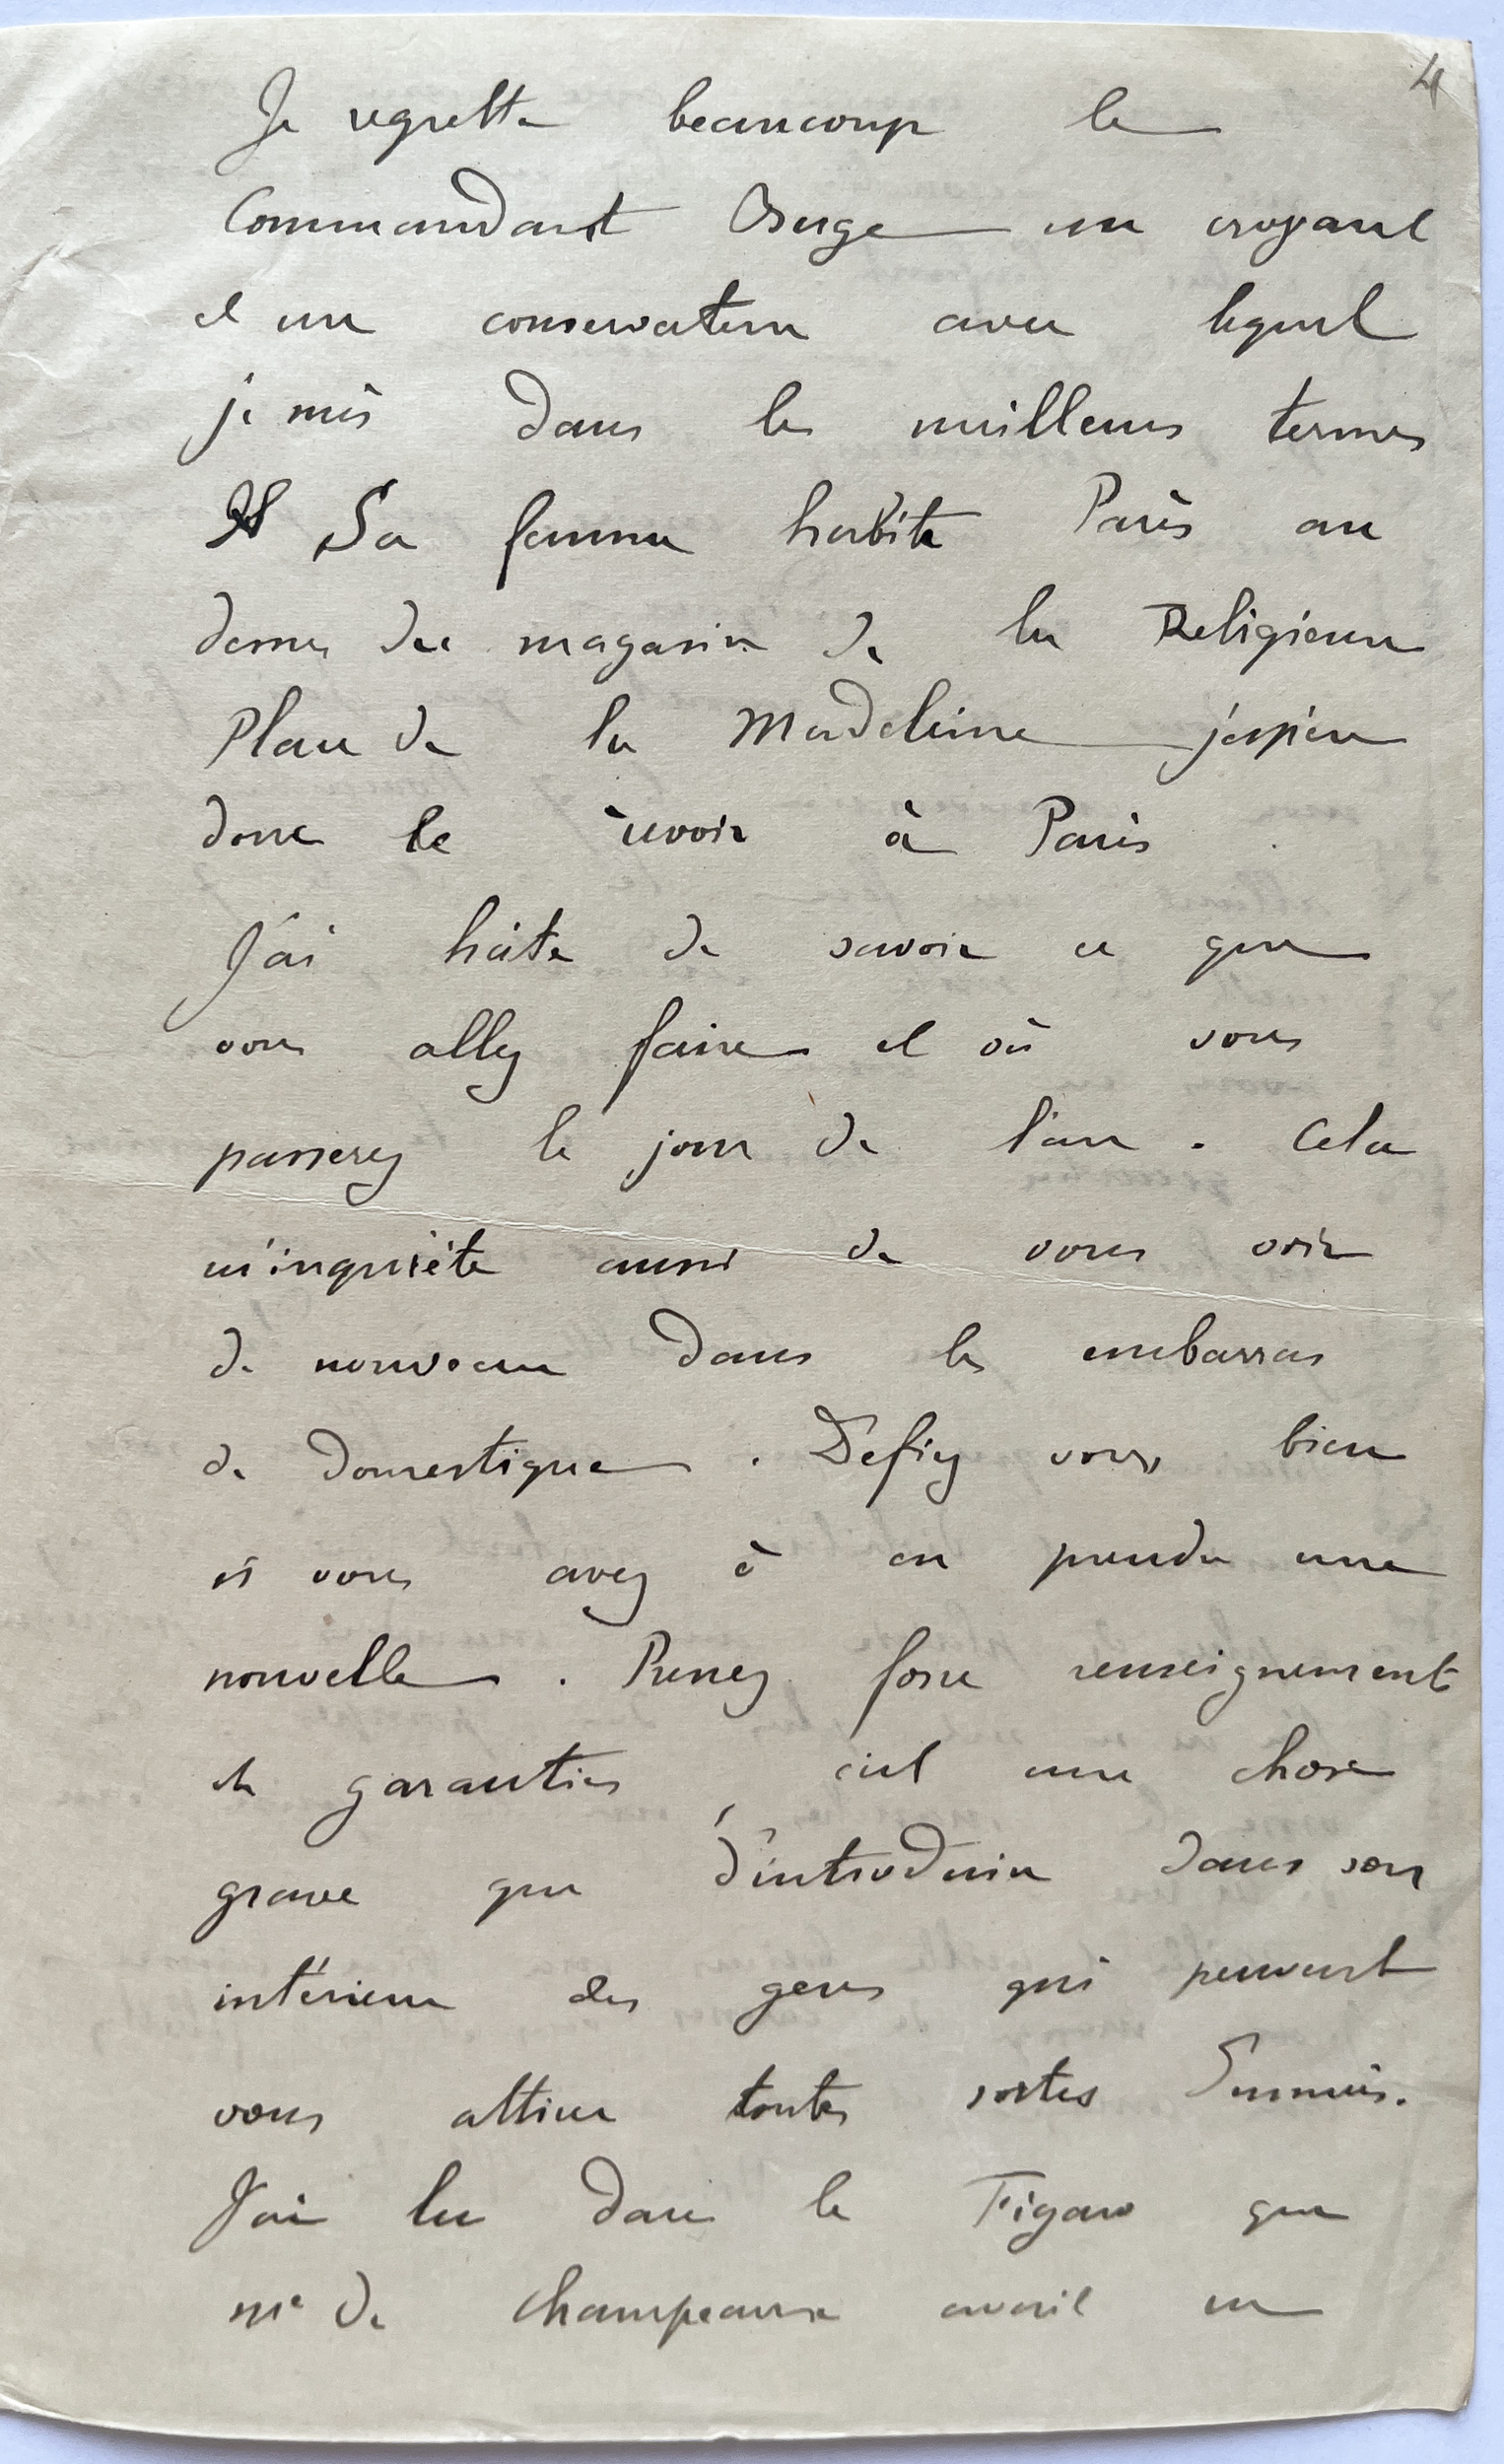 4
Je regrette beaucoup le
Commandant Osuge un croyant
et un conservateur avec lequel
je suis dans les meilleurs termes
Sa femme habite Paris au
dessus du magasin de la Religieuse
Place de la Madeleine j'espère
donc le revoir à Paris
J'ai hâte de savoir ce que
vous allez faire et où vous
passerez le jour de l'an. Cela
m'inquiète aussi de vous voir
de nouveau dans les embarras
de domestique. Défiez vous bien
si vous avez à en prendre une
nouvelle. Prenez force renseignement
et garanties, c'est une chose
grave que d'introduire dans son
intérieur des gens qui peuvent
vous attirer toutes sortes d'ennuis.
J'ai lu dans le Figaro que
Me de Champeaux avait un